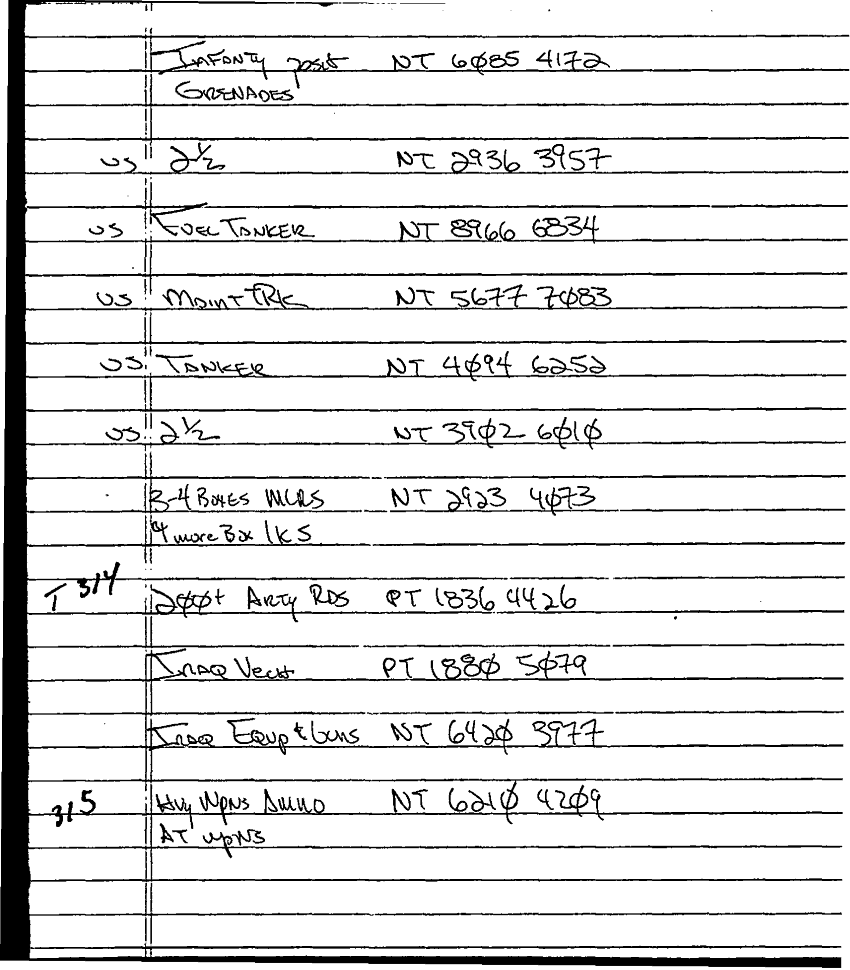 INFANTY posit NT 6085 4172
GRENADES
US 2½ NT 2936 3957
US FUEL TANKER NT 8966 6834
US MAINT TRK NT 5677 7083
US TANKER NT 4094 6252
US 2½ NT 3902 6010
3-4 BOXES MLRS NT 2923 4073
4 more Box 1KS
T 3/4 200+ ARTY RDS PT 1836 4426
IRAQ VECH PT 1880 5079
IRAQ EQUP + GUNS NT 6420 3977
3/5 HVY WPNS AMMO NT 6210 4209
AT WPNS